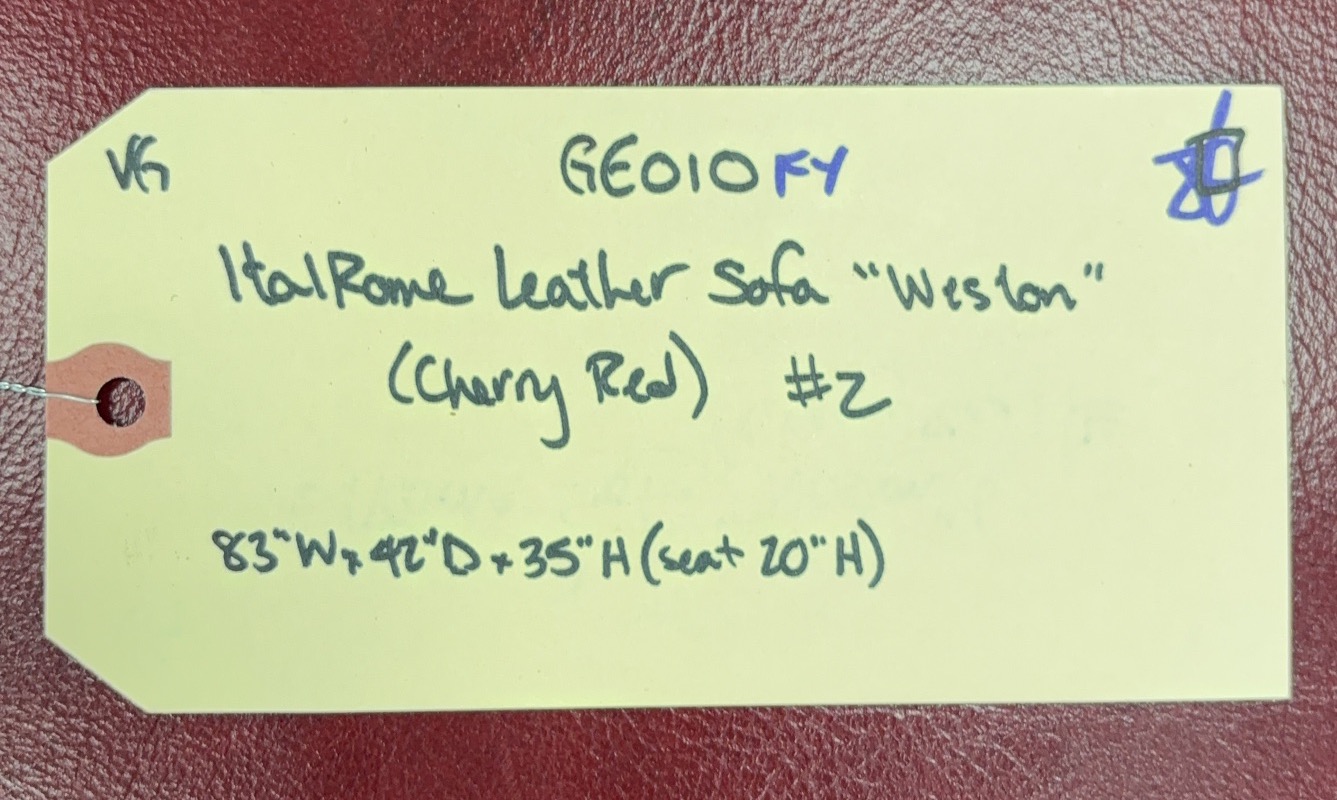 VG GE010FY
ItalRome Leather Sofa "Weston"
(Cherry Red) #2
83"W x 42"D x 35"H (seat 20"H)